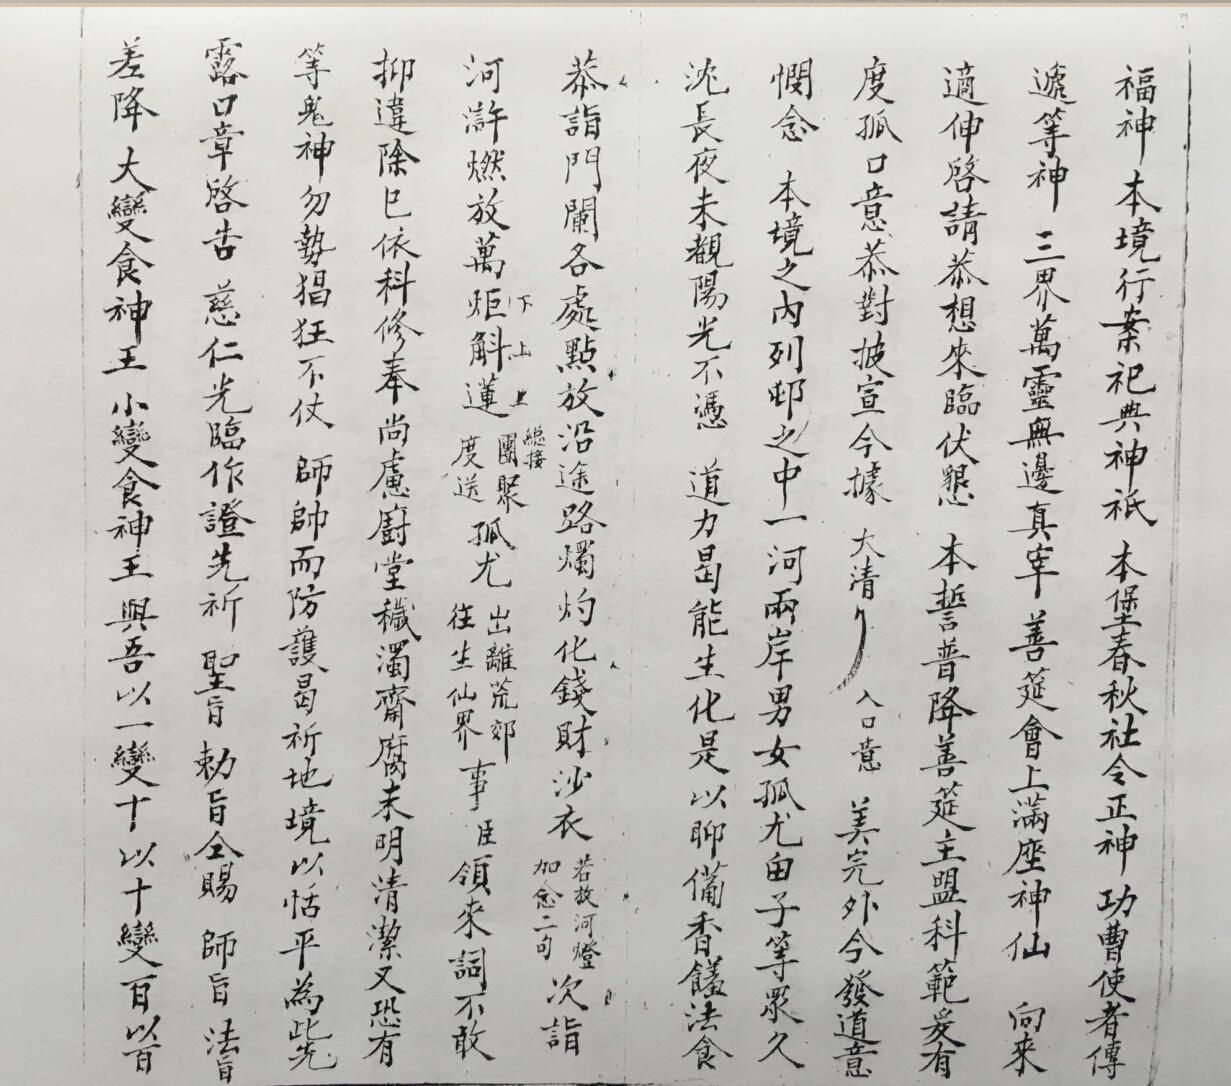 福神 本境行案祀典神祇 本堡春秋社令正神 功曹使者傳
遞等神 三界萬靈無邊真宰 善筵會上滿座神仙 向來
適伸啓請恭想來臨伏懇 本誓普降善筵主盟科範爰有
度孤口意恭對披宣今據 大清 入口意 美完外今發道意
憫念 本境之内列邨之中一河兩岸男女孤尤由子等眾久
沈長夜未覩陽光不憑 道力曷能生化是以聊備香饈法食
恭詣門闌各處點放沿途路燭灼化錢財沙衣 若放河燈加念二句 次詣
河滸燃放萬炬斛蓮 下 上 上 總接 團聚 度送 孤尤 出離荒郊 往生仙界 事 臣 領來詞不敢
抑違除已依科修奉尚慮廚堂穢濁齋腐未明清潔又恐有
等鬼神勿勢猖狂不仗 師帥而防護曷祈地境以恬平為此先
露口章啓告 慈仁光臨作證先祈 聖旨勅旨全賜 師旨 法旨
差降 大變食神王 小變食神王與吾以一變十以十變百以百